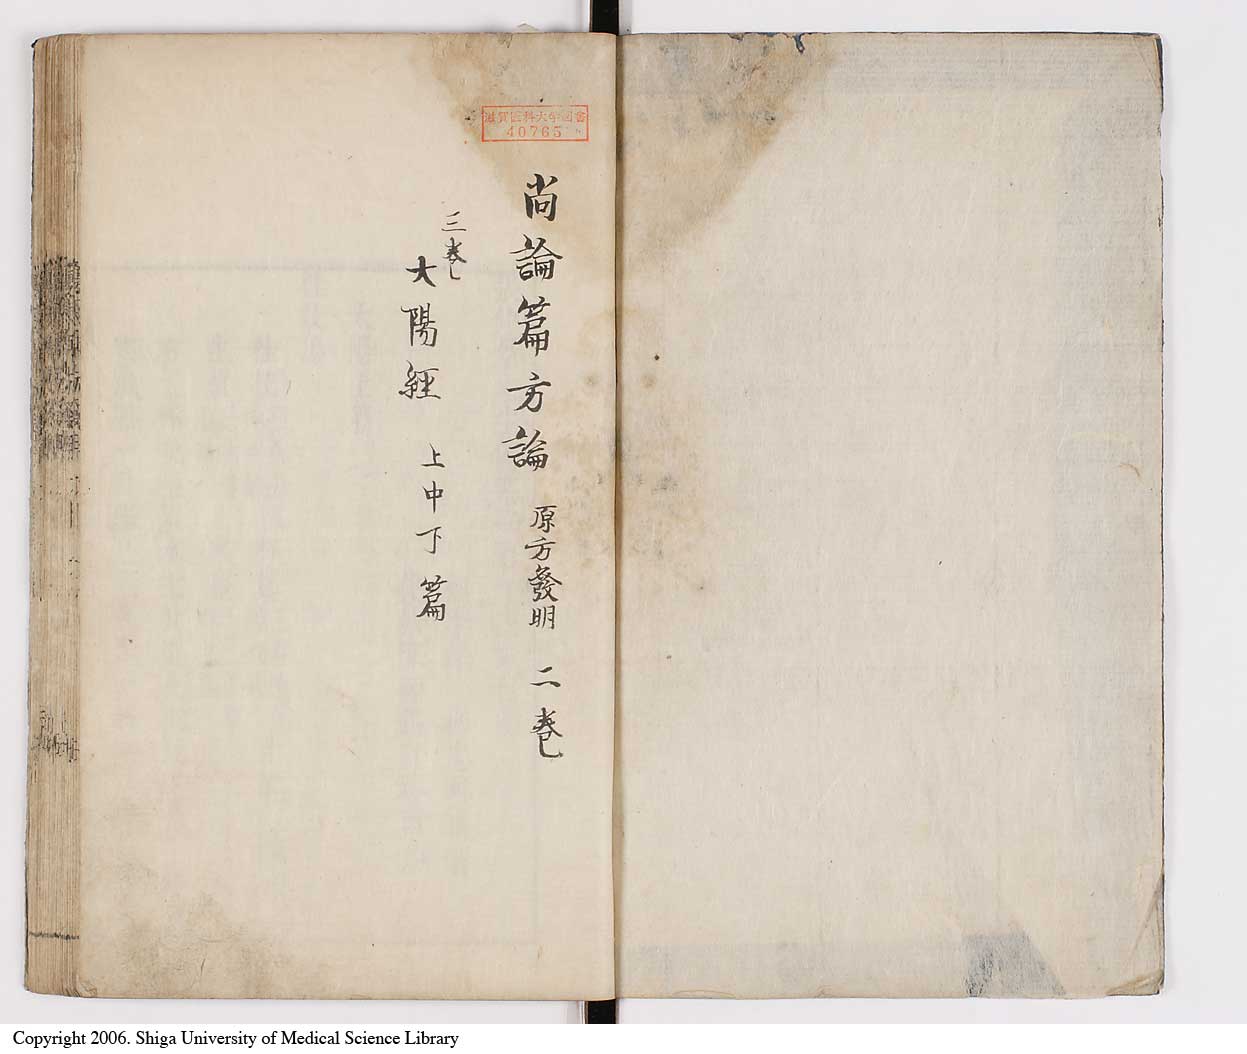 尚論篇方論 原方發明 二卷
三卷
大陽經 上中下篇
滋賀医科大学図書
40765
Copyright 2006. Shiga University of Medical Science Library